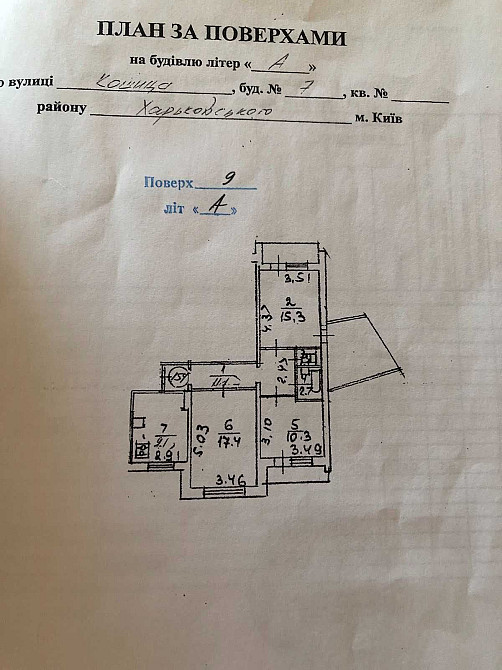 ПЛАН ЗА ПОВЕРХАМИ
на будівлю літер «А»
о вулиці Кошица, буд. № 7, кв. №
району Харьковського м. Київ
Поверх 9
літ «А»
3,51
2
15,3
4.37
2.43
4
2.7
1
11.1
54
5.03
6
17.4
3.46
3,10
5
10.3
3.49
7
2.91